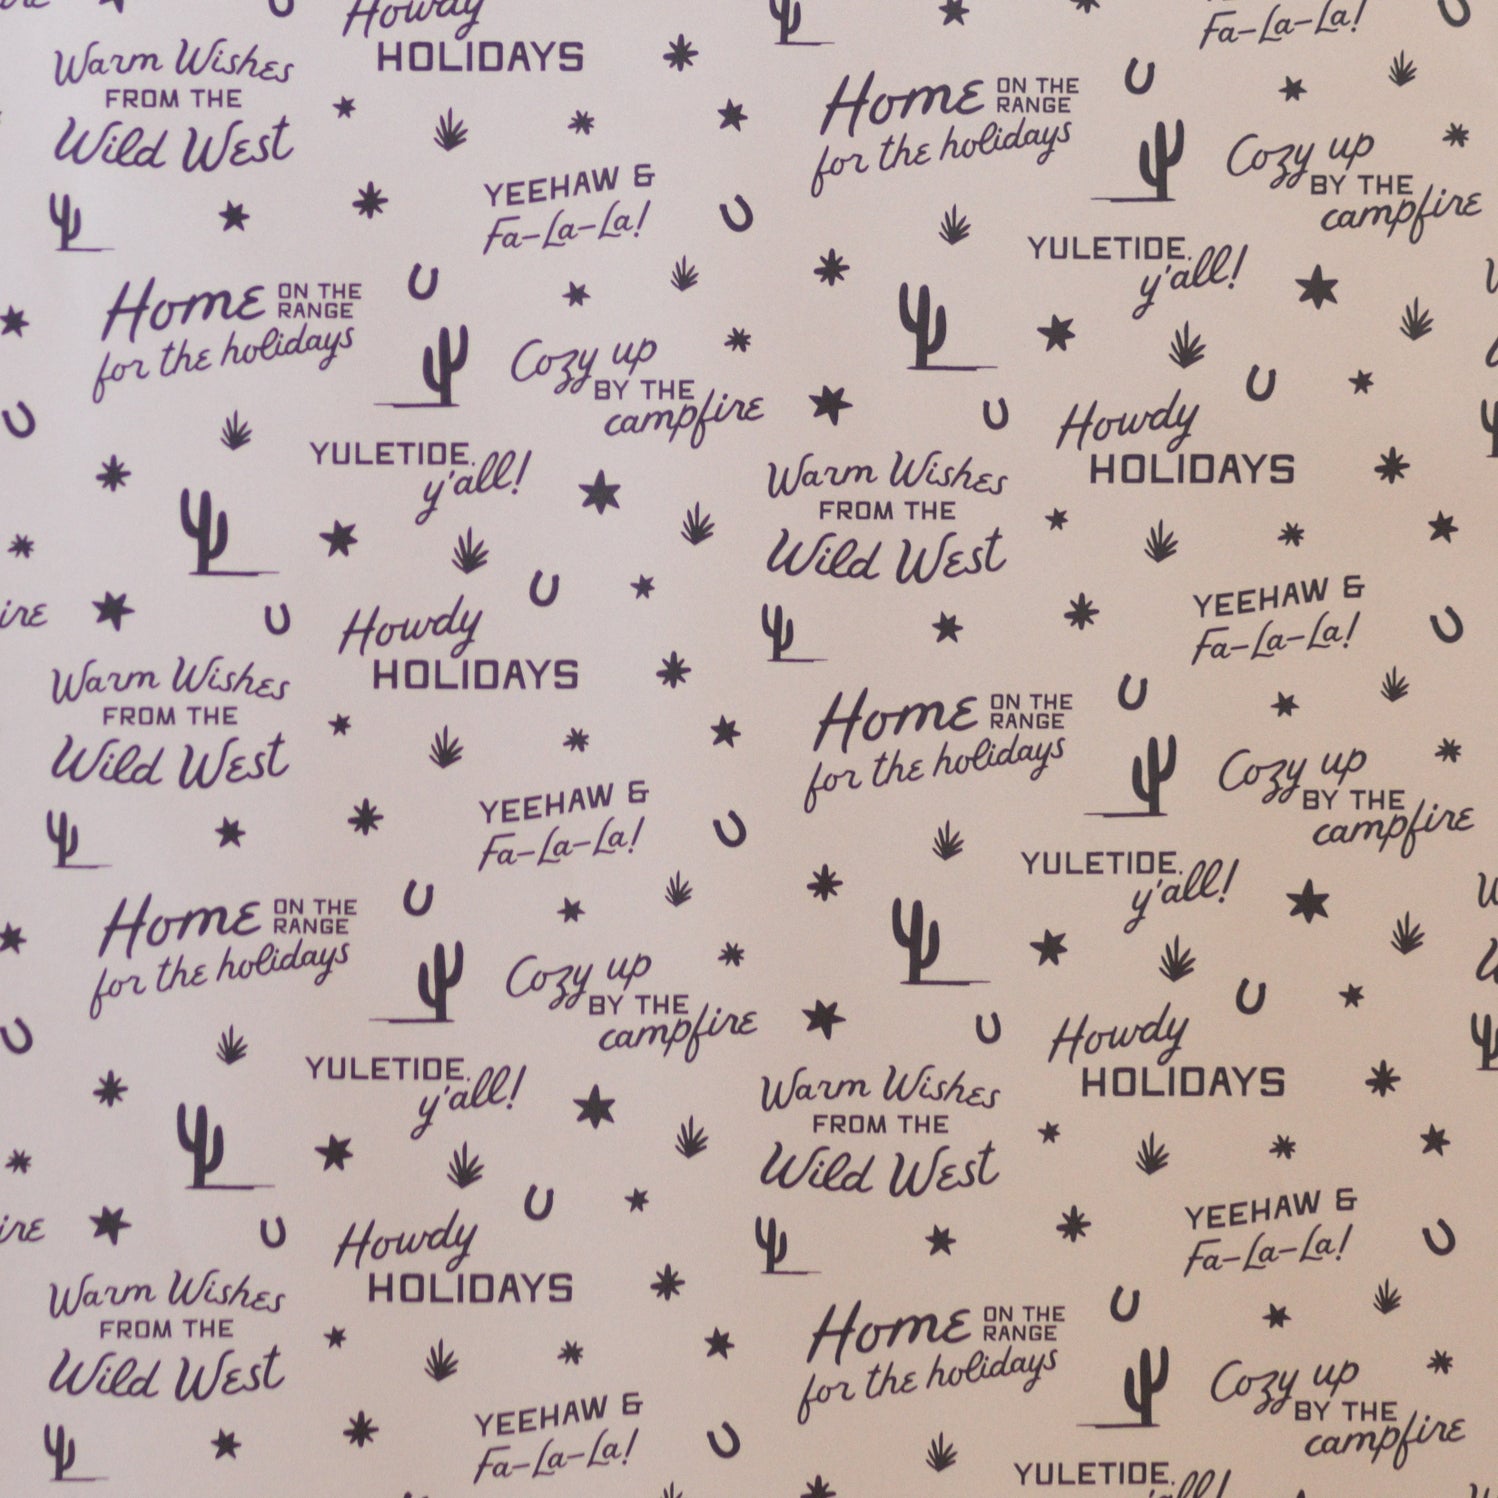 Howdy
HOLIDAYS
Warm Wishes
FROM THE
Wild West
Fa-La-La!
Home ON THE
RANGE
for the holidays
YEEHAW &
Fa-La-La!
Cozy up
BY THE
campfire
YULETIDE,
y'all!
Home ON THE
RANGE
for the holidays
Cozy up
BY THE
campfire
YULETIDE,
y'all!
Howdy
HOLIDAYS
Warm Wishes
FROM THE
Wild West
YEEHAW &
Fa-La-La!
Howdy
HOLIDAYS
Warm Wishes
FROM THE
Wild West
Home ON THE
RANGE
for the holidays
Cozy up
BY THE
campfire
YEEHAW &
Fa-La-La!
YULETIDE,
y'all!
Home ON THE
RANGE
for the holidays
Cozy up
BY THE
campfire
YULETIDE,
y'all!
Howdy
HOLIDAYS
Warm Wishes
FROM THE
Wild West
YEEHAW &
Fa-La-La!
Howdy
HOLIDAYS
Warm Wishes
FROM THE
Wild West
Home ON THE
RANGE
for the holidays
Cozy up
BY THE
campfire
YEEHAW &
Fa-La-La!
YULETIDE,
y'all!